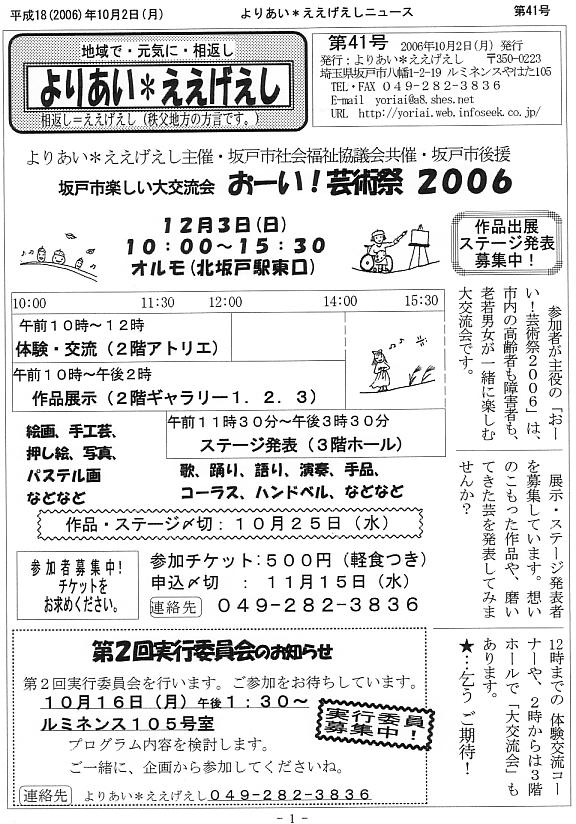 平成18(2006)年10月2日(月)　よりあい＊ええげえしニュース　第41号
地域で・元気に・相返し
よりあい＊ええげえし
相返し＝ええげえし（秩父地方の方言です。）
第41号　2006年10月2日(月) 発行
発行：よりあい＊ええげえし　〒350-0223
埼玉県坂戸市八幡1-2-19 ルミネンスやはた105
TEL・FAX ０４９-２８２-３８３６
E-mail　yoriai@a8.shes.net
URL　http://yoriai.web.infoseek.co.jp/
よりあい＊ええげえし主催・坂戸市社会福祉協議会共催・坂戸市後援
坂戸市楽しい大交流会　おーい！芸術祭 ２００６
１２月３日(日)
１０：００～１５：３０
オルモ(北坂戸駅東口)
作品出展
ステージ発表
募集中！
10:00　11:30　12:00　14:00　15:30
午前１０時～１２時
体験・交流（２階アトリエ）
午前１０時～午後２時
作品展示（２階ギャラリー１．２．３）
午前１１時３０分～午後３時３０分
ステージ発表（３階ホール）
絵画、手工芸、
押し絵、写真、
パステル画
などなど
歌、踊り、語り、演奏、手品、
コーラス、ハンドベル、などなど
作品・ステージ〆切：１０月２５日（水）
参加者募集中！
チケットを
お求めください。
参加チケット：５００円（軽食つき）
申込〆切　：　１１月１５日（水）
連絡先　０４９-２８２-３８３６
参加者が主役の「おー
い！芸術祭２００６」は、
市内の高齢者も障害者も、
老若男女が一緒に楽しむ
大交流会です。
展示・ステージ発表者
を募集しています。想い
のこもった作品や、磨い
てきた芸を発表してみま
せんか？
12時までの 体験交流コー
ナーや、２時からは３階
ホールで「大交流会」も
あります。
★…乞う ご期待！
第２回実行委員会のお知らせ
第２回実行委員会を行います。ご参加をお待ちしています。
１０月１６日（月）午後１：３０～
ルミネンス１０５号室
実行委員
募集中！
プログラム内容を検討します。
ご一緒に、企画から参加してくださいね。
連絡先　よりあい＊ええげえし０４９-２８２-３８３６
- 1 -